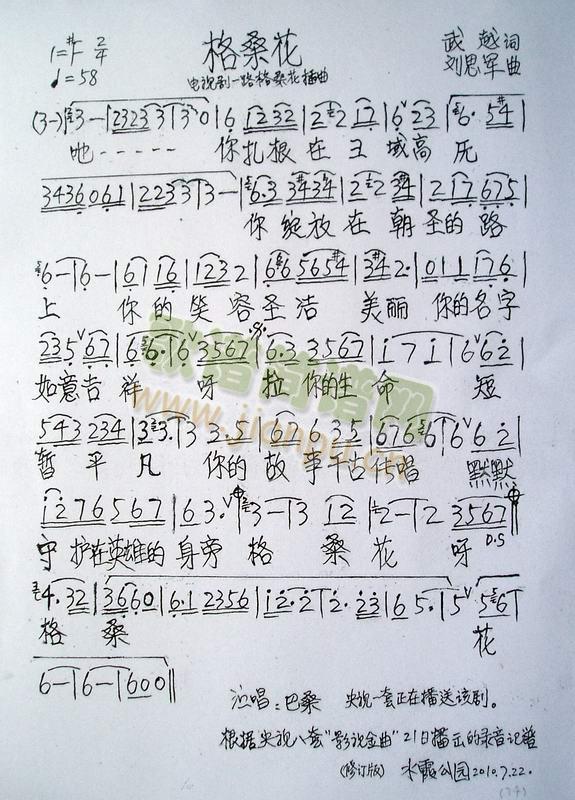 格桑花
1=♯F 2/4
♩=58
电视剧一路格桑花插曲
武越词
刘思军曲
(3-)|3-|2323 3|3 0|6 12 32|2 2 17|6 23|6· 5♯4|
吔----- 你扎根在王域高兀
3436 061|22 33|3-|6·3 3♯434|2 2 3♯4|2 17 675|
你绽放在朝圣的路
6-|6-|61 16|123 2|66 565♯4|3♯4 2·|011 176|
上 你的笑容圣洁 美丽 你的名字
235 67|6 6·|6 3567|6·3 3567|i 7 i|6 662|
如意吉祥 呀 拉 你的生命 短
543 234|3 3·|3 3·5|6 6 35|676 6|6 6 2|
暂平凡 你的故事千古传唱 默默
i276 5667|6 3·|3-|3 12|2-|2 3567|
守护在英雄的身旁 格桑花 呀 D.S
4·32|3660|6·1 2356|12·2|2·23|6 5·|5 56|
格桑 花
6-|6-|600‖
演唱:巴桑 央视一套正在播送该剧。
根据央视八套"影视金曲"21日播出的录音记谱
(修订版) 水霞公园2010.7.22.
歌谱简谱网
www.jianpu.cn